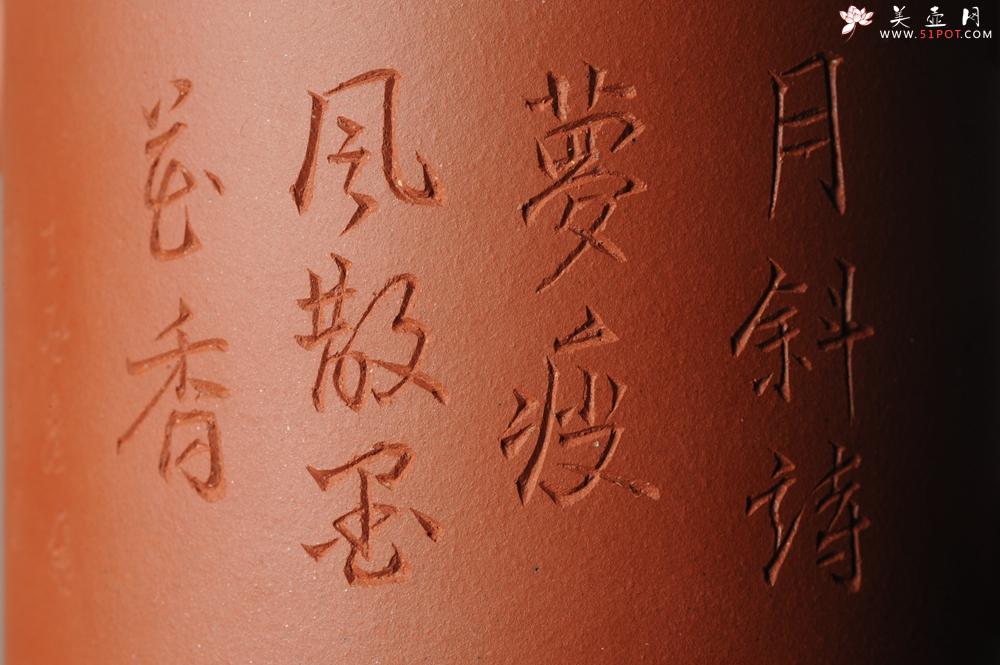 月斜詩
夢瘦
風散墨
花香
美壶网
WWW.51POT.COM